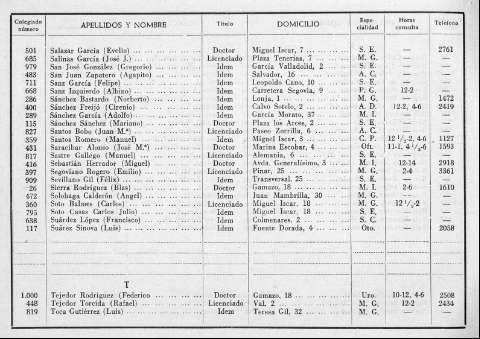 Colegiado número APELLIDOS Y NOMBRE Título DOMICILIO Especialidad Horas consulta Teléfono
501 Salazar García (Evelio) Doctor Miguel Iscar, 7 S. E. — 2761
685 Salinas García (José J.) Licenciado Plaza Tenerías, 7 M. G. — —
979 San José González (Gregorio) Idem García Valladolid, 2 S. E. — —
483 San Juan Zapatero (Agapito) Idem Salvador, 16 A. C. — —
711 Sanz García (Felipe) Idem Leopoldo Cano, 10 S. E. — —
668 Sanz Izquierdo (Albino) Idem Carretera Segovia, 9 P. G. 12-2 —
286 Sánchez Bastardo (Norberto) Idem Lonja, 1 M. G. — 1472
400 Sánchez Freijó (Cirenio) Idem Calvo Sotelo, 2 A. D. 12-2, 4-6 2419
289 Sánchez García (Adolfo) Idem García Morato, 37 M. I. — —
115 Sánchez Sánchez (Mariano) Doctor Plaza los Arces, 2 S. E. — —
827 Santos Bobo (Juan M.ª) Licenciado Paseo Zorrilla, 6 A. C. — —
359 Santos Romero (Manuel) Idem Miguel Iscar, 3 C. P. 12 1/2-2, 4-6 1127
431 Sarasíbar Alonso (José M.ª) Doctor Marina Escobar, 4 Oft. 11-1, 4 1/2-6 1593
817 Sastre Gallego (Manuel) Licenciado Alemania, 6 S. E. — —
416 Sebastián Herrador (Miguel) Doctor Avda. Generalísimo, 3 M. I. 12-14 2918
397 Segoviano Rogero (Emilio) Licenciado Pinar, 25 M. G. 2-4 3361
909 Sevillano Gil (Félix) Idem Transversal, 25 S. E. — —
26 Sierra Rodríguez (Blas) Doctor Gamazo, 18 M. I. 2-6 1610
472 Solohaga Calderón (Angel) Idem Juan Mambrilla, 30 M. G. — —
360 Soto Balnes (Carlos) Licenciado Miguel Iscar, 18 M. G. 12 1/2-2 —
795 Soto Casas Carlos Julio) Idem Miguel Iscar, 18 S. E. — —
638 Suárdez López (Francisco) Idem Colmenares, 2 S. C. — —
117 Suárez Sinova (Luis) Idem Fuente Dorada, 4 Oto. — 2058
T
1.000 Tejedor Rodríguez (Federico Doctor Gamazo, 18 Uro. 10-12, 4-6 2508
448 Tejedor Torcida (Rafael) Licenciado Val, 2 M. G. 12-2 2434
819 Toca Gutiérrez (Luis) Idem Teresa Gil, 32 M. G. — —